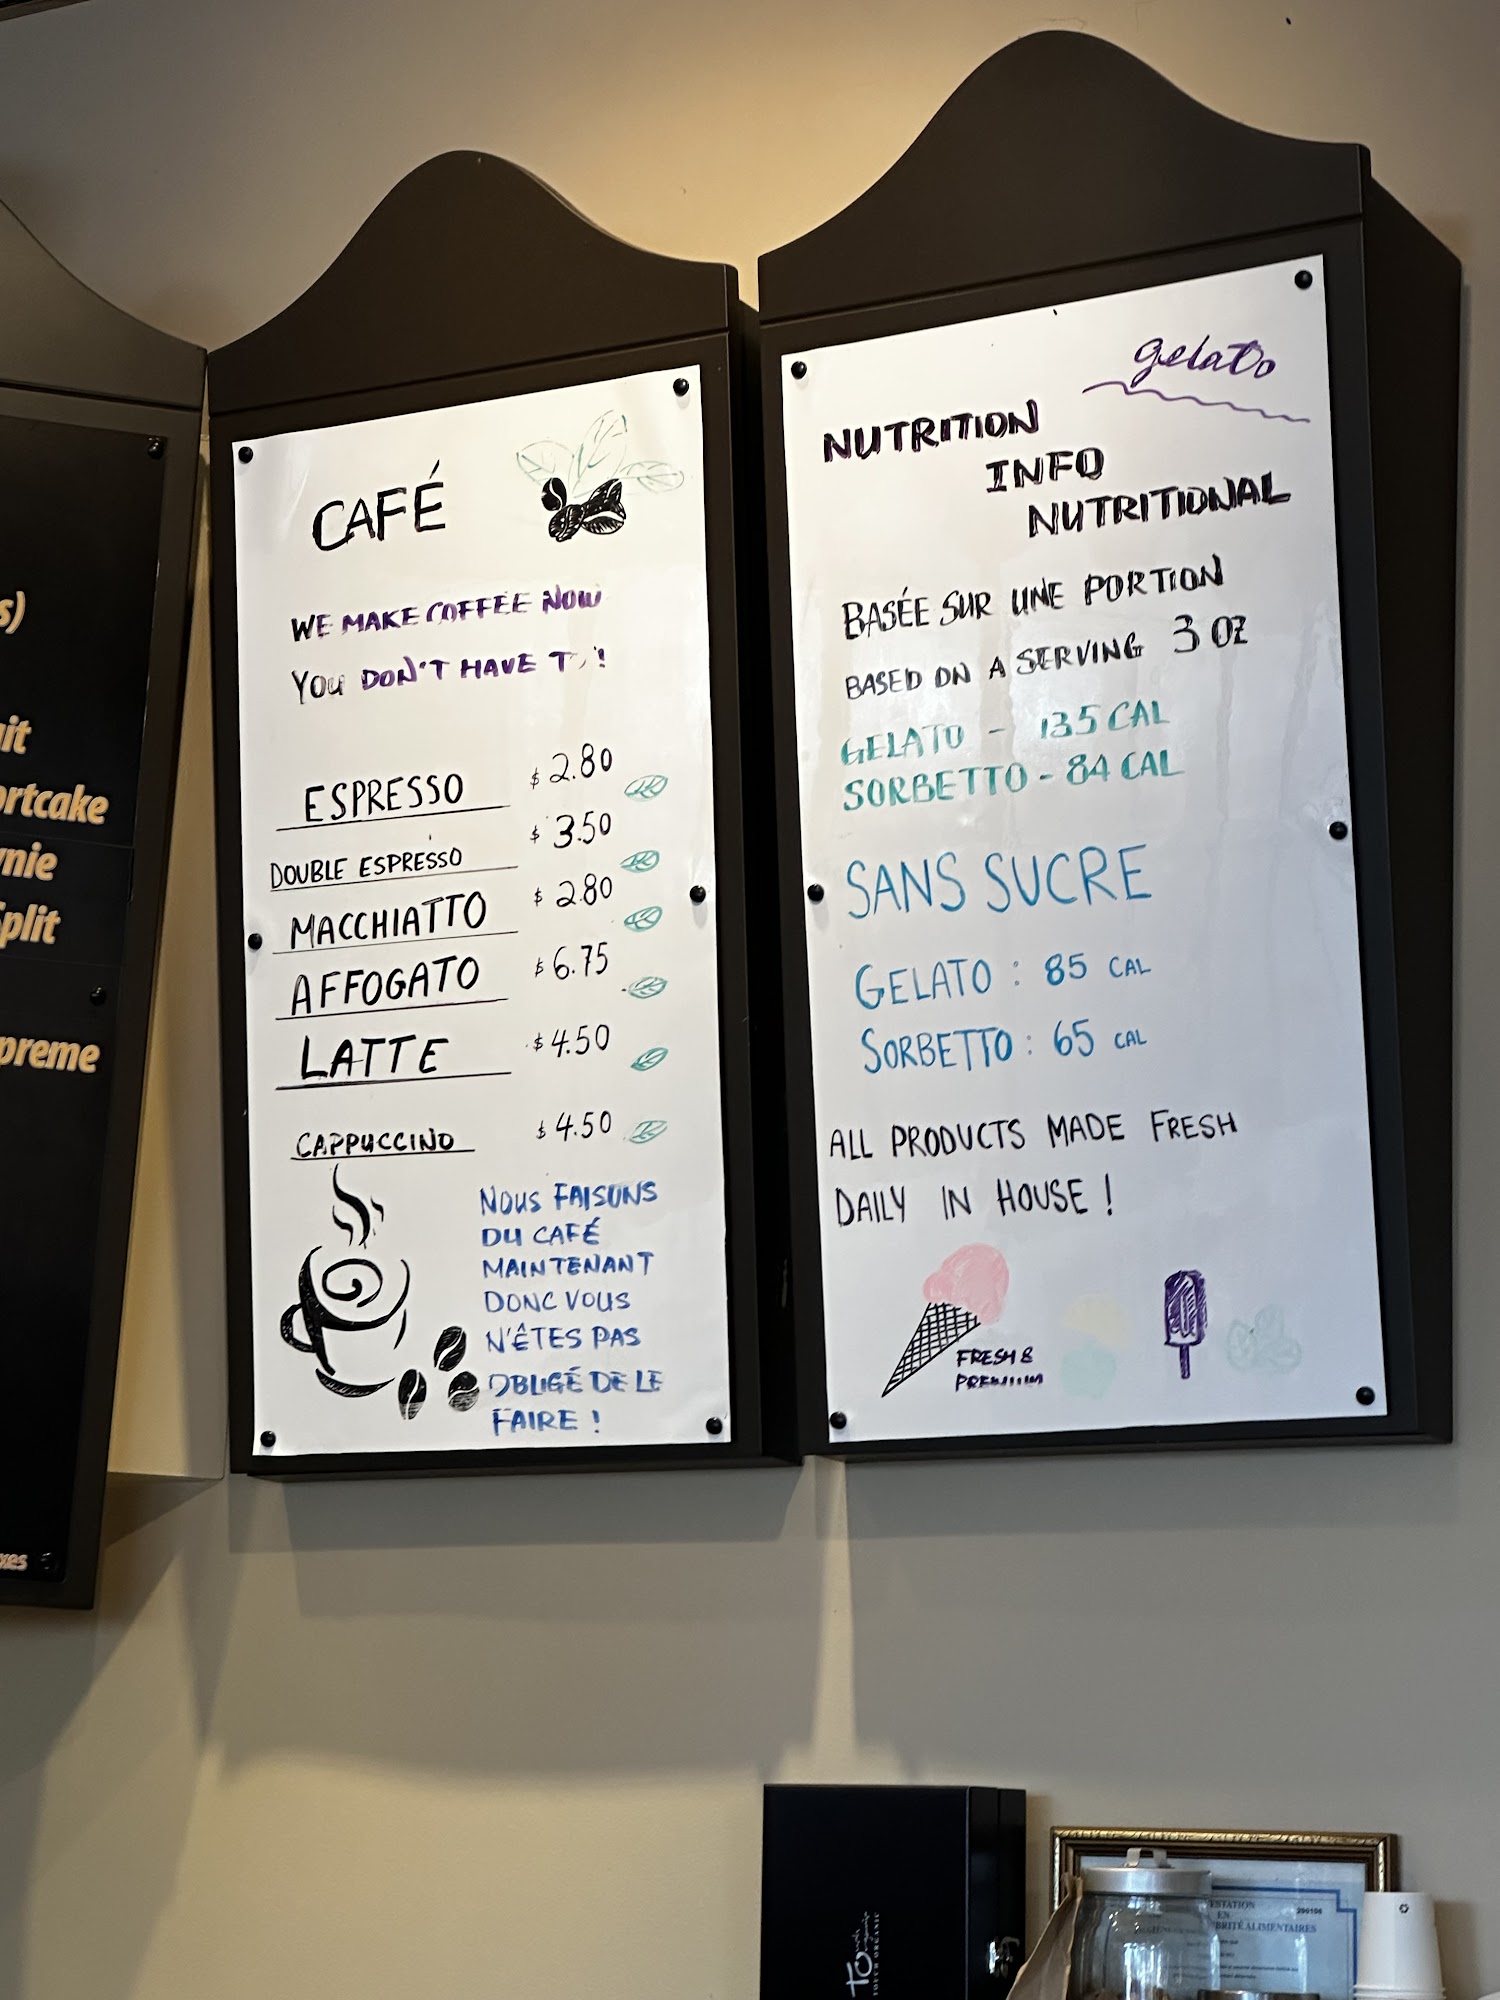 s)
it
ortcake
nie
Split
preme
xes
CAFÉ
WE MAKE COFFEE NOW
YOU DON'T HAVE T !
ESPRESSO $ 2.80
DOUBLE ESPRESSO $ 3.50
MACCHIATTO $ 2.80
AFFOGATO $ 6.75
LATTE $ 4.50
CAPPUCCINO $ 4.50
NOUS FAISONS
DU CAFÉ
MAINTENANT
DONC VOUS
N'ÊTES PAS
OBLIGÉ DE LE
FAIRE !
gelato
NUTRITION
INFO
NUTRITIONAL
BASÉE SUR UNE PORTION
BASED ON A SERVING 3 OZ
GELATO - 135 CAL
SORBETTO - 84 CAL
SANS SUCRE
GELATO : 85 CAL
SORBETTO : 65 CAL
ALL PRODUCTS MADE FRESH
DAILY IN HOUSE !
FRESH &
PREMIUM
TOUCH ORGANIC
ESTATION 290106
EN
BRITÉ ALIMENTAIRES